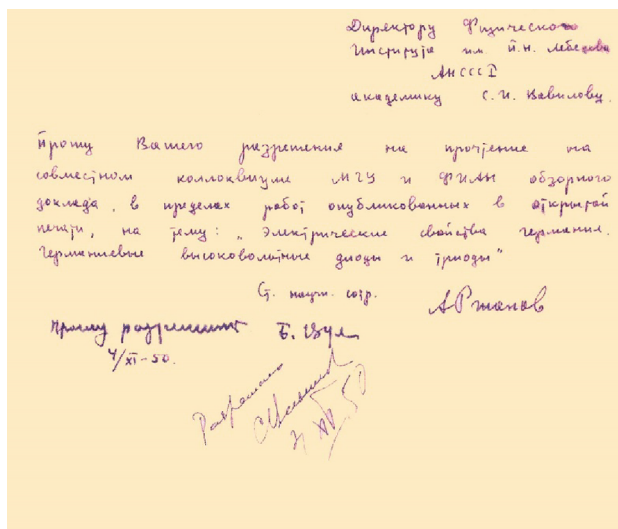 Директору Физического
Института им. П.Н. Лебедева
АНСССР
академику С.И. Вавилову.
Прошу Вашего разрешения на прочтение на
совместном коллоквиуме МГУ и ФИАН обзорного
доклада, в пределах работ опубликованных в открытой
печати, на тему: „Электрические свойства германия.
Германиевые высоковольтные диоды и триоды"
Ст. научн. сотр. АРжанов
Прошу разрешить Б. Вул
4/XI-50.
Разрешаю
XI 50